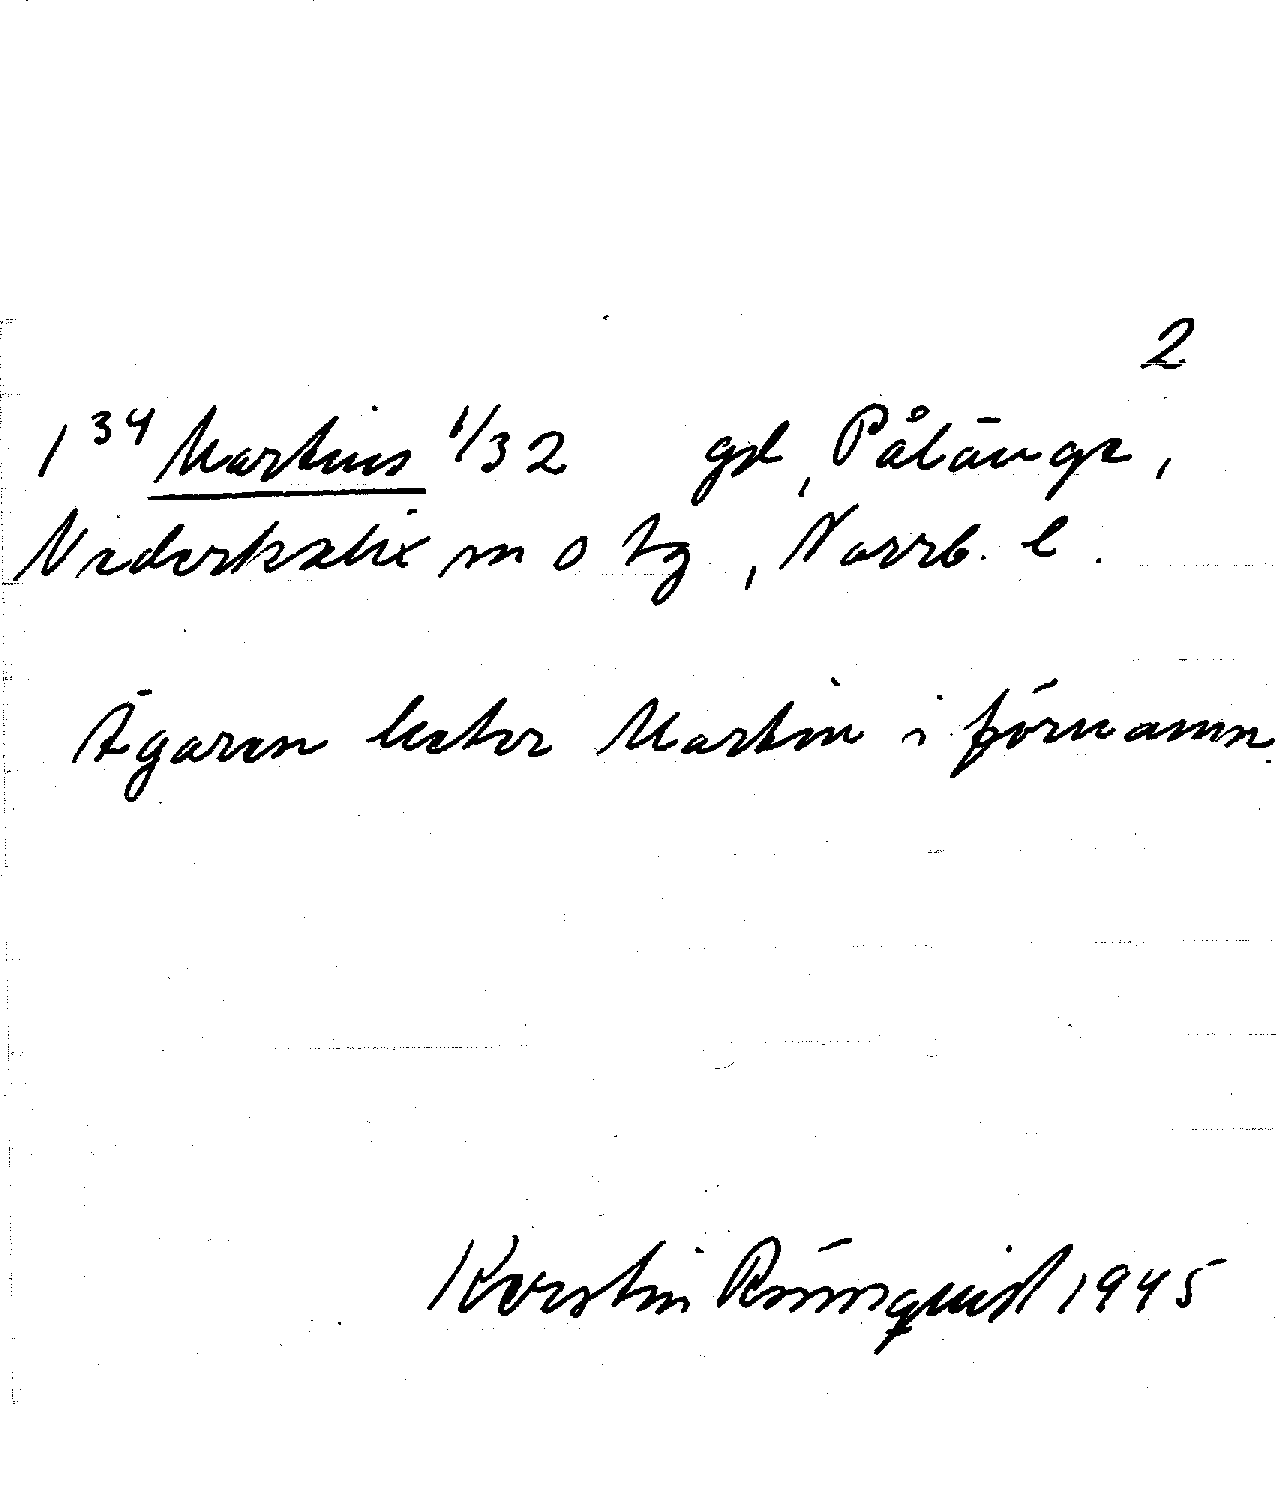 2
1³⁴ Martins 1/32 gd, Pålänge,
Nederkalix sn o tg, Norrb. l.
Ägaren heter Martin i förnamn.
Kerstin Rönnquist 1945